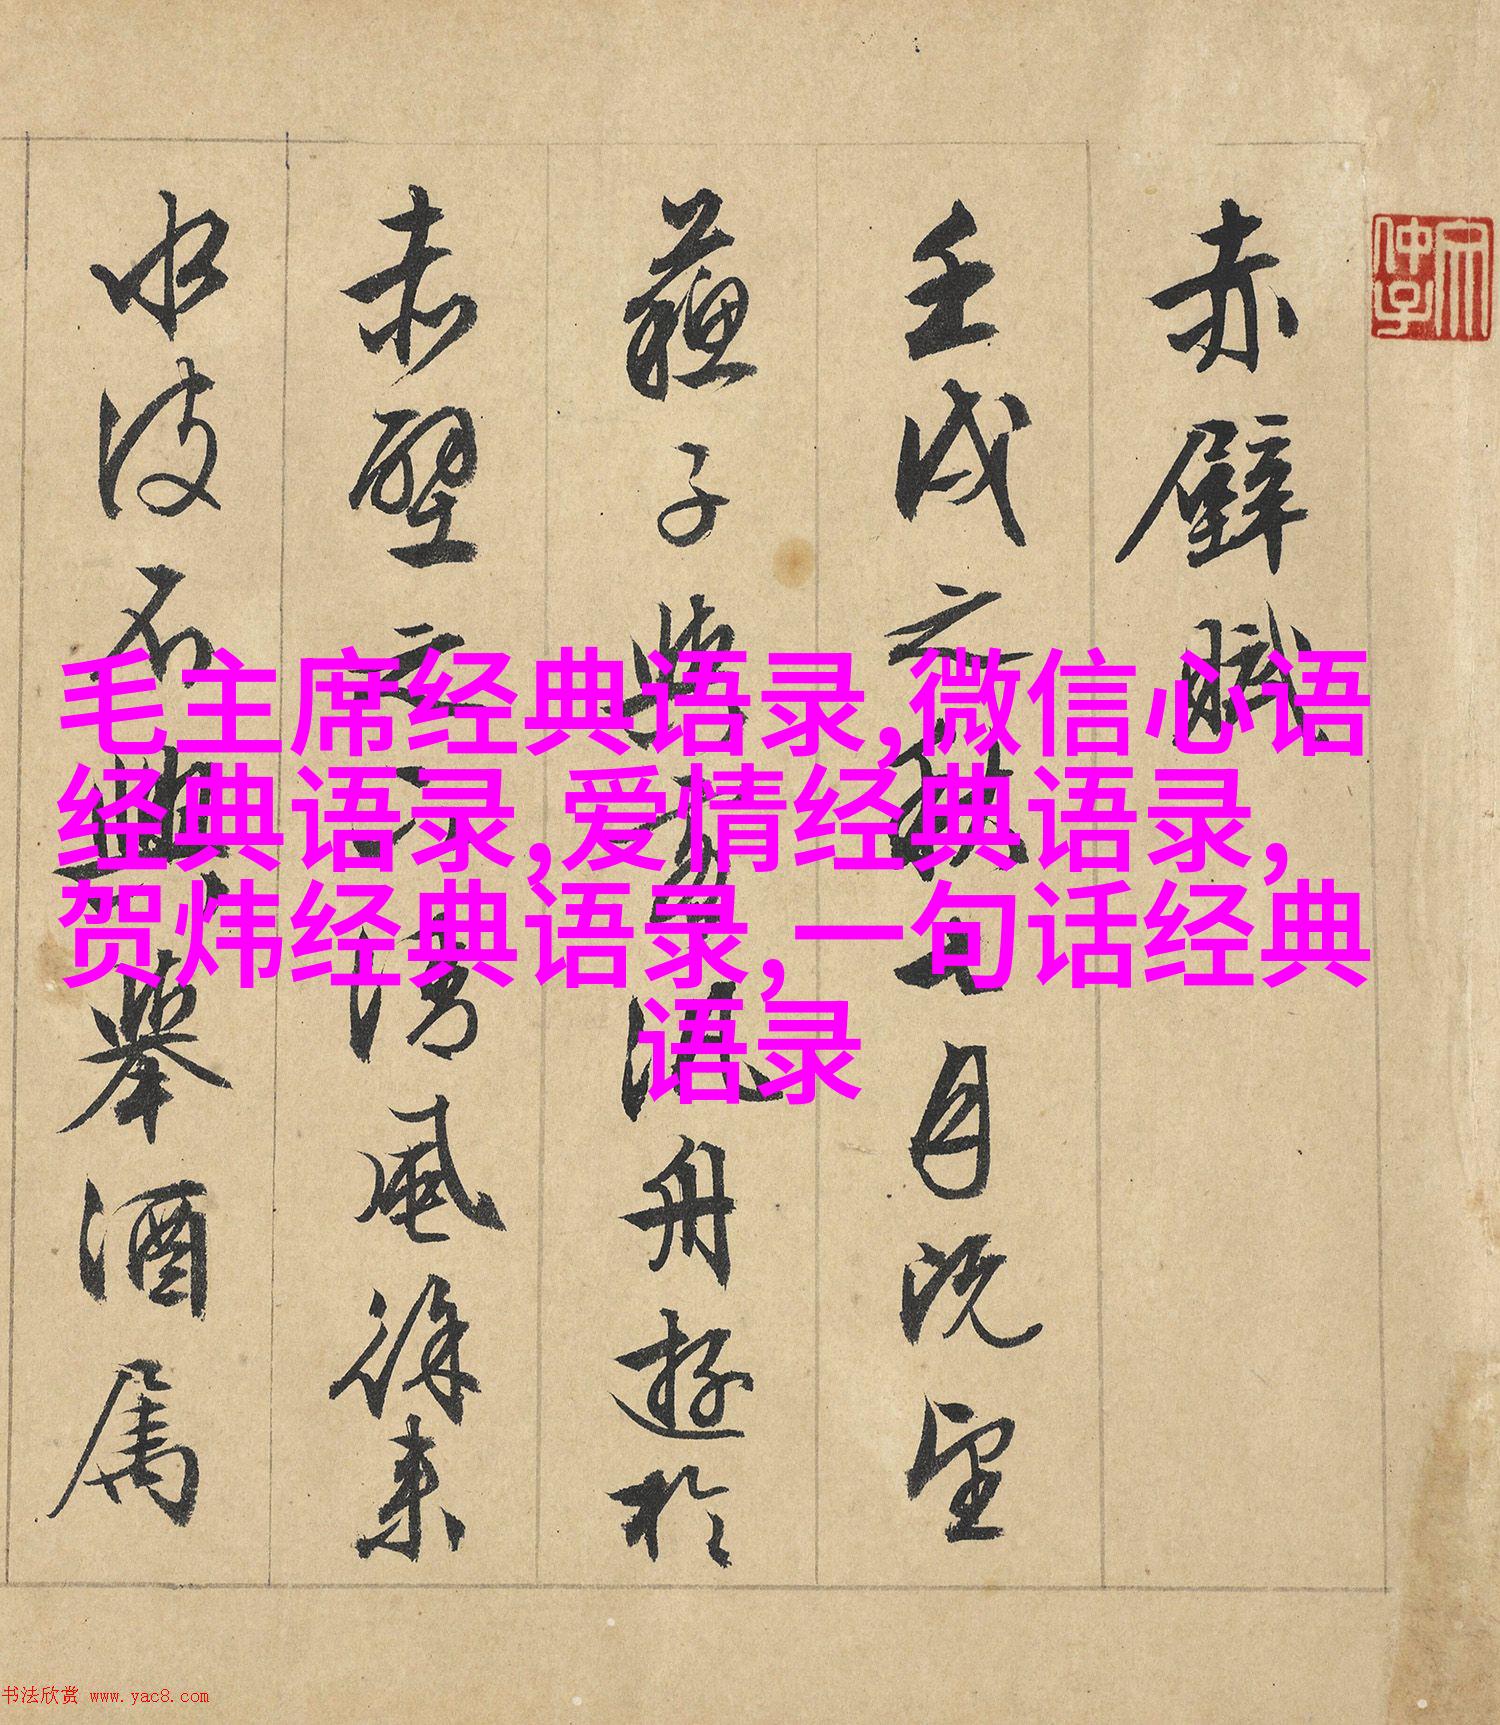 赤壁賦
壬戌之秋七月既望
蘓子與客泛舟遊於
赤壁之下清風徐来
水波不興舉酒属
毛主席经典语录,微信心语
经典语录,爱情经典语录,
贺炜经典语录,一句话经典
语录
书法欣赏 www.yac8.com